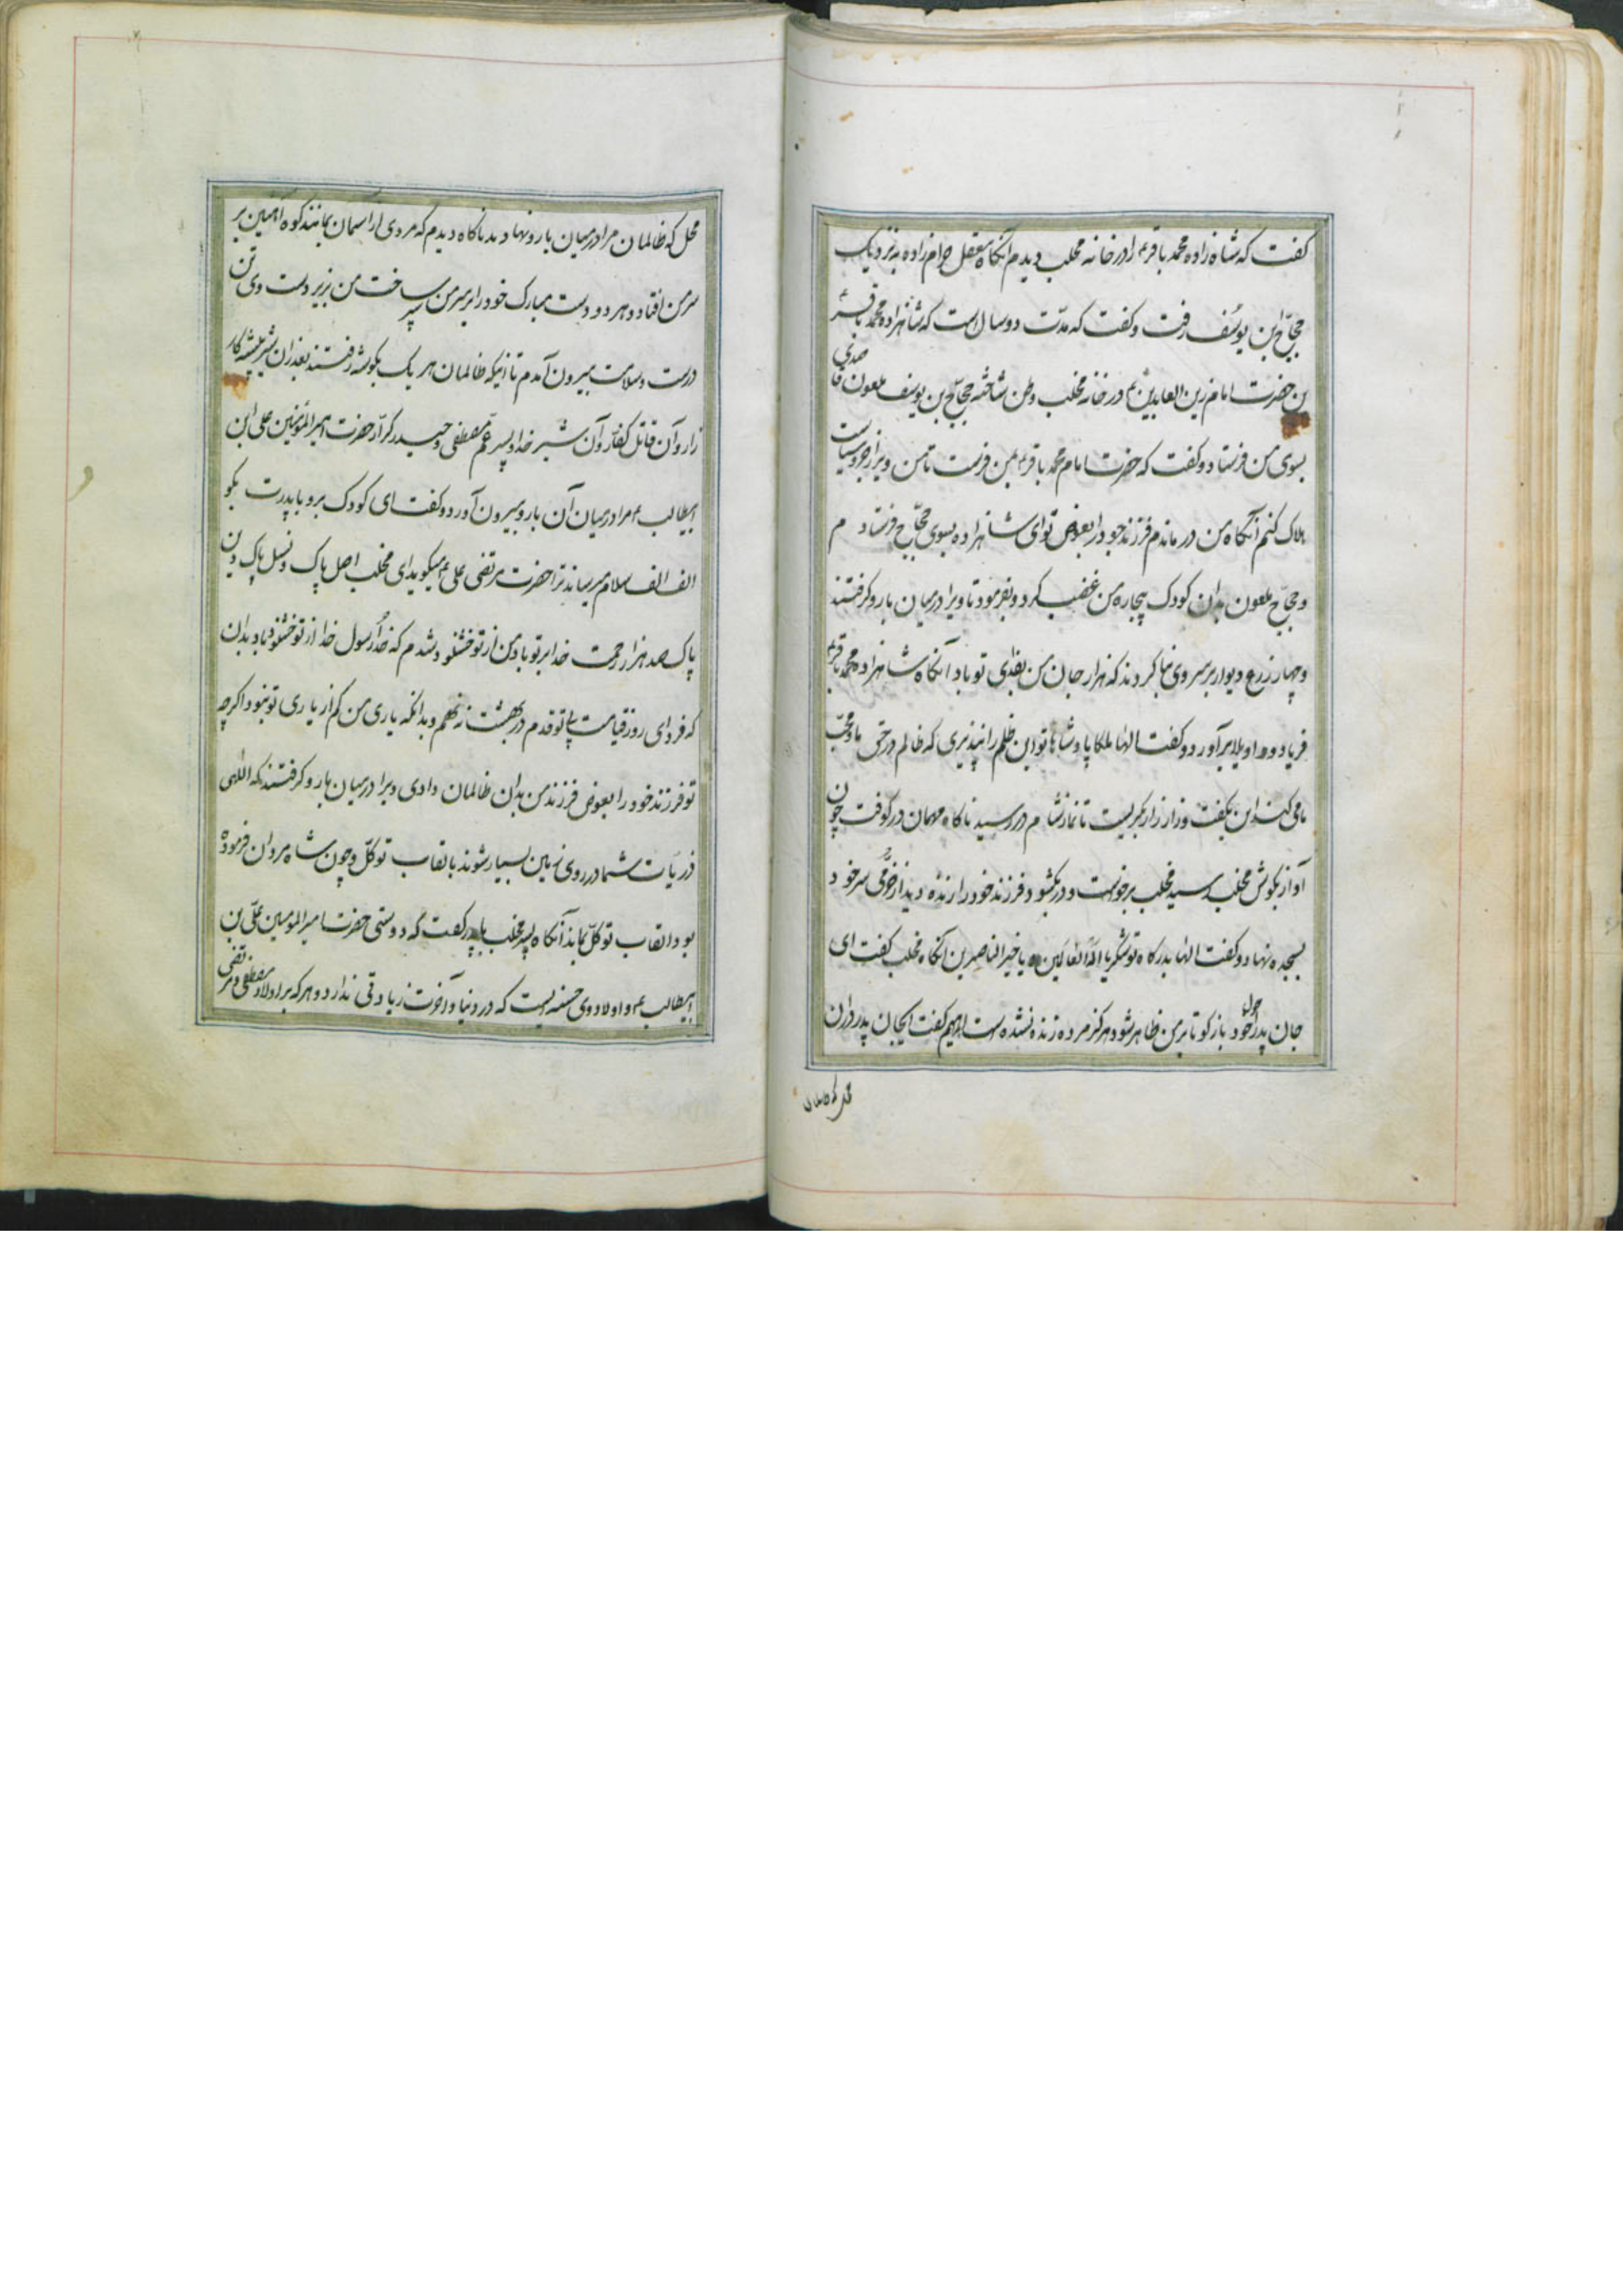 کفت که شاه زاده محمد باقرم را در خانه مخلب دیدم انکاه معقل حرام زاده به نزدیک
حجاج ابن یوسف رفت و کفت که مدّت دو سال است که شاهزاده محمد باقر
بن حضرت امام زین العابدین م در خانه مخلب وطن ساخته حجاج بن یوسف ملعون قاصدی
بسوی من فرستاد و کفت که حضرت امام محمد باقرم بمن فرست تا من ویرا زجر و سیاست
هلاک کنم آنکاه من در ماندم فرزند خود را بعوض تو ای شاهزاده بسوی حجاج فرستادم
و حجاج ملعون بدان کودک بیچاره من غضب کرد و بفرمود تا ویرا در میان بارو کرفتند
و چهار زرع دیوار بر سر وی بنا کردند که هزار جان من بفدای تو باد انکاه شاهزاده محمد باقرم
فریاد و واویلا برآورد و کفت الها ملکا پادشاها تو این ظلم را نپذیری که ظالم در حق ما و محب
ما می کند این بکفت و زار زار بکریست تا نماز شام در رسید ناکاه مهمان در کوفت چون
آواز بکوش مخلب رسید مخلب برخواست و در بکشود فرزند خود را زنده دید از خرمی سر خود
بسجده نهاد و کفت الها بدرکاه تو شکر یا اله العالمین یا خیر الناصرین انکاه مخلب کفت ای
جان پدر احوال خود باز کو تا بر من ظاهر شود هرکز مرده زنده نشده است ابراهیم کفت ایجان پدر در ان
محل که ظالمان
محل که ظالمان مرا در میان بارو نهادند ناکاه دیدم که مردی از اسمان بمانند کوه آهنین بر
سر من افتاد و هر دو دست مبارک خود را بر سر من سپر ساخت من بزیر دست وی تن
درست و سلامت بیرون آمدم تا انیکه ظالمان هر یک بکوشه رفتند بعد از ان شیر بیشه کار
زار و آن قاتل کفار و آن شیر خدا و پسر عم مصطفی و حیدر کرار حضرت امیر المؤمنین علی ابن
ابیطالب م مرا در میان آن بارو بیرون آورد و کفت ای کودک برو با پدرت بکو
الف الف سلام میرساند ترا حضرت مرتضی علی م میکوید ای مخلب اصل پاک و نسل پاک و دین
پاک صد هزار رحمت خدا بر تو باد من از تو خشنود شدم که خدا و رسول خدا از تو خشنود باد بدان
که فردای روز قیامت بی تو قدم در بهشت ننهم و بدانکه یاری من کم از یاری تو نبود اکرچه
تو فرزند خود را بعوض فرزند من بدان ظالمان دادی ویرا در میان بارو کرفتند که اللهی
ذریات شما در روی زمین بسیار شوند بالقاب توکل و چون شاه مردان فرموده
بود القاب توکل بماند آنکاه پسر مخلب با پدر کفت که دوستی حضرت امیر المومنین علی بن
ابیطالب م و اولاد وی حسنه ایست که در دنیا و آخرت زیادتی ندارد و هر که بر اولاد مصطفی و مرتضی